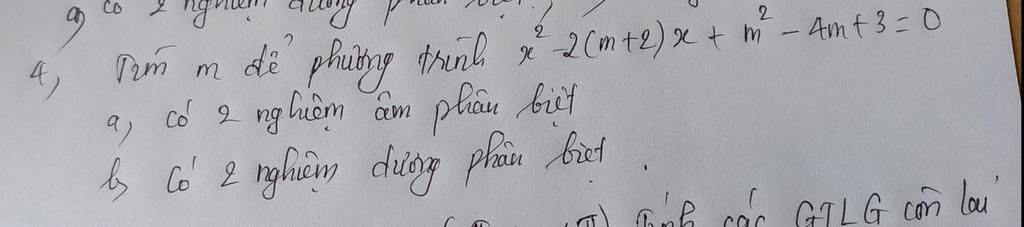 a, có 2 nghiệm dương phân biệt
4, Tìm m để phương trình x² - 2(m+2)x + m² - 4m + 3 = 0
a, có 2 nghiệm âm phân biệt
b, Có 2 nghiệm dương phân biệt.
Tính các GTLG còn lại